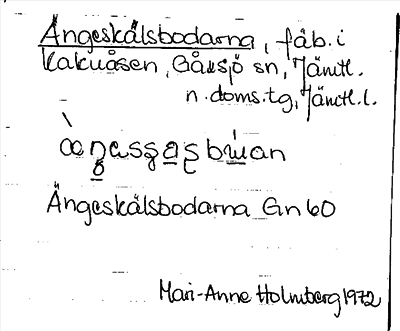 Ängeskålsbodarna, fäb. i
Kakuåsen, Gåxsjö sn, Jämtl.
n. doms.tg, Jämtl. l.
Ängeskålsbodarna Gn 60
Mari-Anne Holmberg 1972